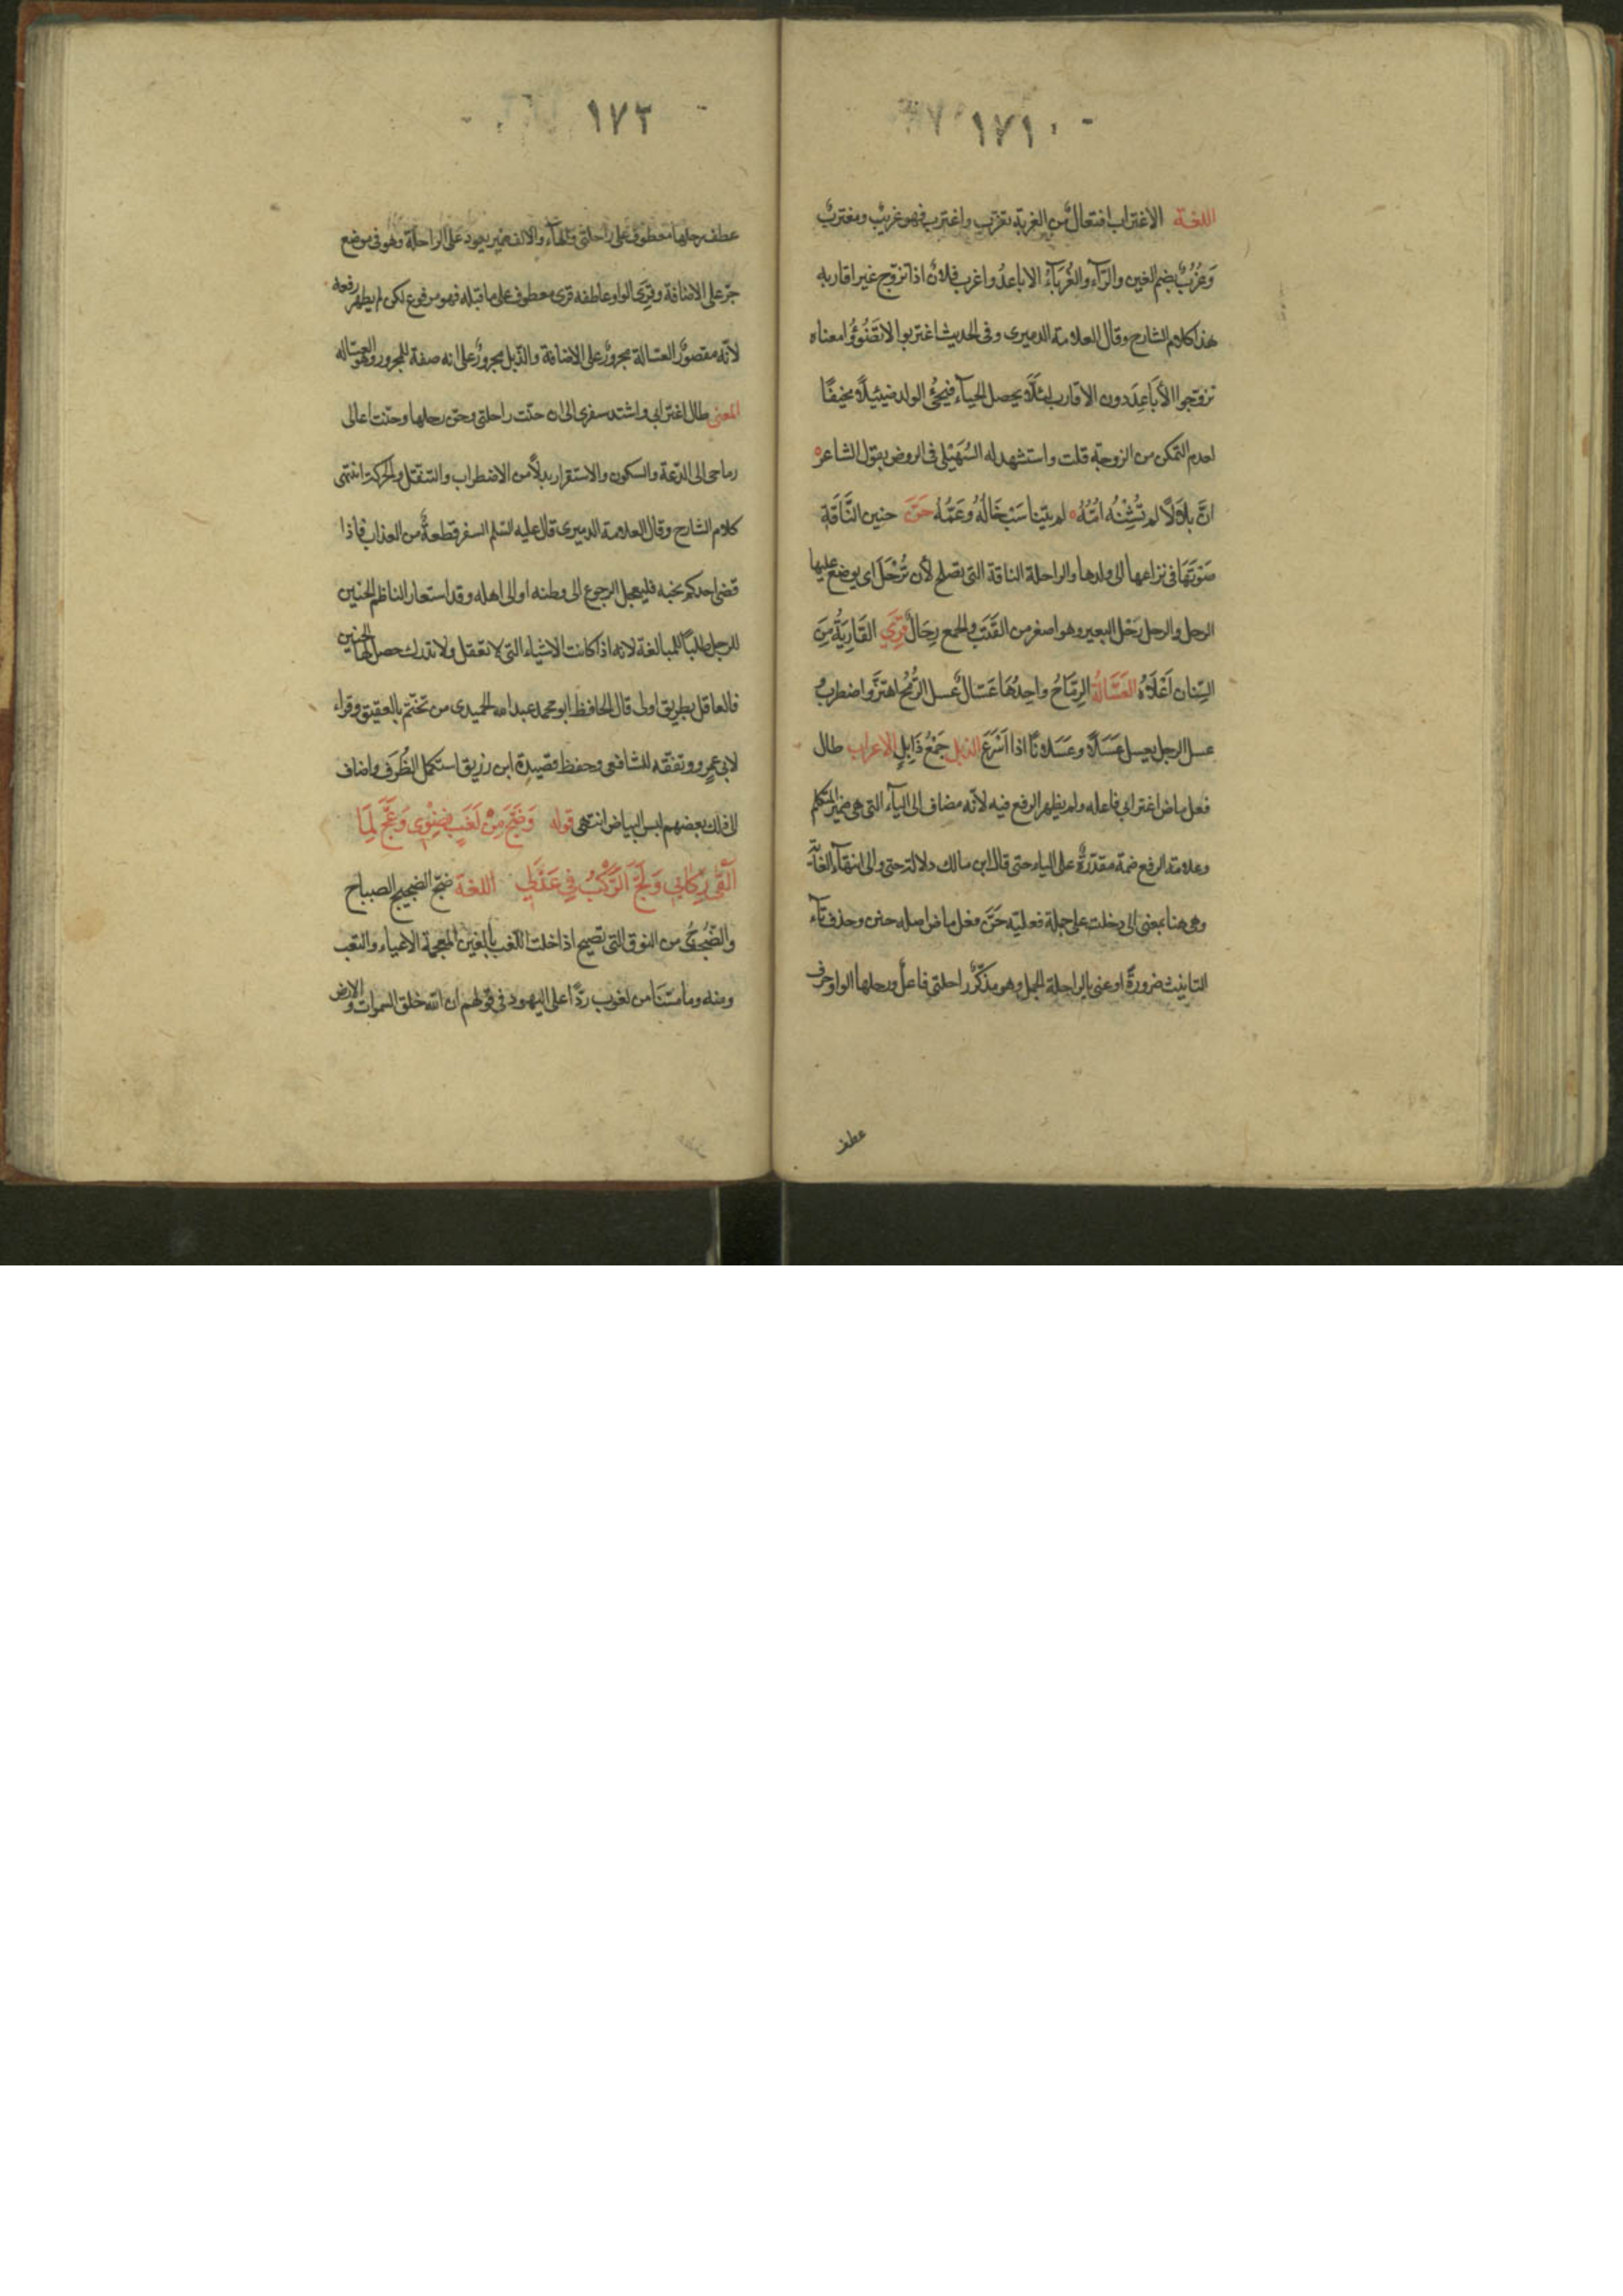 ١٧١
اللغة الاغتراب افتعالٌ من الغربة تغرّب واغترب فهو غريبٌ ومغتربٌ
وَغُرُبٌ بضم الغين والرّآء والغُرَبَآءُ الاباعدُ واغرب فلانٌ اذا تزوج غير اقاربه
هذا كلام الشارح وقال العلامة الدميرى وفى الحديث اغتربوا لا تَضْوُوُا معناه
تزوّجوا الأبَاعِدَ دون الاقارب لئلّا يحصل الحيآء فيجئ الولد ضيئيلًا نحيفًا
لعدم التمكن من الزوجة قلت واستشهد له السُهَيْلى فى الروض بقول الشاعر ه
انَّ بلالًا لم تَشِنْهُ اُمُّهُ ه لم يتناسَبْ خَالُهُ وَعَمُّهُ حَنَّ حنين النَّاقَةِ
صَوْتَهَا فى نزاعها الى ولدها والراحلة الناقة التى تصلح لأن تُرْحَلَ اى يوضع عليها
الرحل والرحل رَحْل البعير وهو اصغر من القَتَبِ والجمع رِحَالٌ قَرَى القَارِيَةُ مِنَ
السِّنان اَعْلَاهُ العَسَّالَةُ الرِمَاحُ واحِدُهَا عَسّالٌ عَسل الرُّمْحُ اهتزَّ واضطربَ
عسل الرجل يعسل عَسَلًا وعَسَلانًا اذا اَسْرَعَ الذبل جَمْعُ ذَابِلٍ الاعراب طال
فعل ماض اغترابى فاعله ولم يظهر الرفع فيه لأنّه مضاف الى اليآء التى هى ضمير المتكلم
وعلامة الرفع ضمة مقدّرةٌ على الياء حتى قال ابن مالك دلالة حتى والى انتهآء الغاية
وهى هنا بمعنى الى دخلت على جملة فعليّه حَنَّ فعل ماض اصله حنن وحذف تآء
التانيث ضرورةً او عنى بالراحلة الجمل وهو مذكّر راحلتى فاعلٌ ورحلها الواو حرف
عطف
١٧٢
عطف رحلها معطوف على راحلتى والهآء والالف ضمير يعود على الراحلة وهو فى موضع
جرّ على الاضافة وقَرَى الواو عاطفه قرى معطوف على ما قبله فهو مرفوع لكن لم يظهر رفعه
لأنّه مقصورٌ العسّالة مجرورٌ على الاضافة والذّبل مجرورٌ على انه صفة للمجرور وهو العسّاله
المعنى طال اغترابى واشتد سفرى الى ان حنّت راحلتى وحنّ رحلها وحنّت اعالى
رماحى الى الدّعة والسكون والاستقرار بدلًا من الاضطراب والتنقّل والحركة انتهى
كلام الشارح وقال العلامة الدميرى قال عليه السّلم السفر قطعةٌ من العذاب فاذا
قضى احدكم نحبه فليعجل الرجوع الى وطنه او الى اهله وقد استعار الناظم الحنين
للرحل طلبًا للمبالغة لانه اذا كانت الاشياء التى لا تعقل ولا تدرك حصل لها الحنين
فالعاقل بطريق اولى قال الحافظ ابو محمد عبد الله الحميدى من تختّم بالعقيق وقراء
لابى عمرٍو وتفقه للشافعى وحفظ قصيدة ابن زريق استكمل الظُرف واضاف
الى ذلك بعضهم لبس البياض انتهى قوله وَضَجَّ مِنْ لَغَبٍ نِضْوِى وَعَجَّ لِمَا
اَلْقَى رِكَابِى وَلَجَّ الرَّكْبُ فِى عَذَلِى اللغة ضجّ الضجيج الصياح
والضَّجُوجُ من النوق التى تصيح اذا حلبت اللَغب بالغين المعجمة الاعياء والتعب
ومنه وما مسّنا من لغوب ردًّا على اليهود فى قولهم ان الله خلق السموات والارض